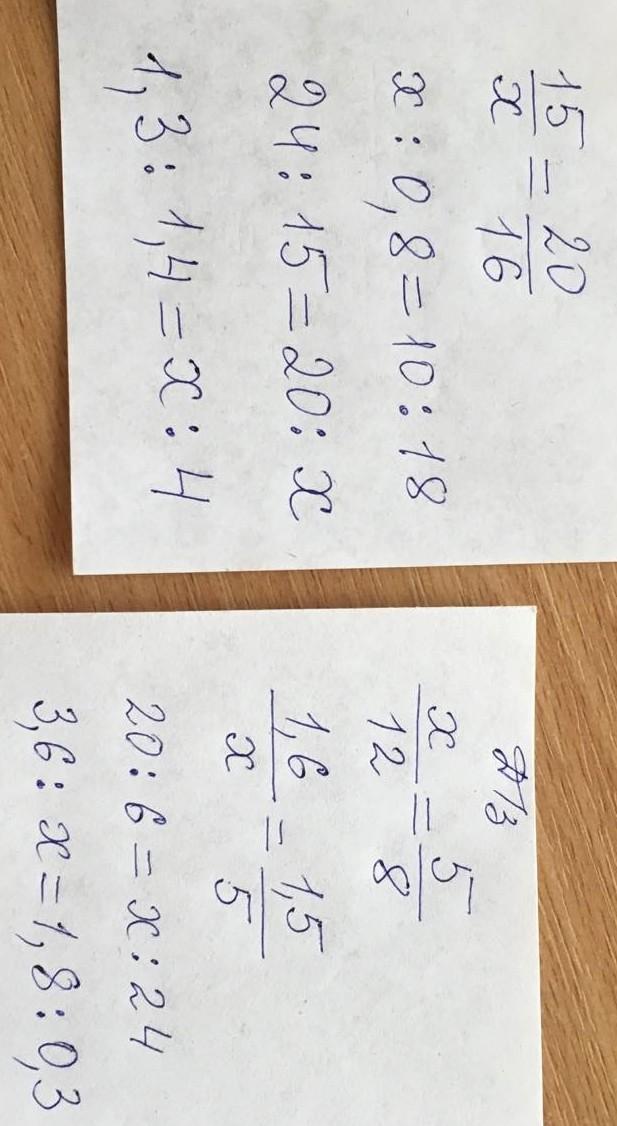 15/x = 20/16
x : 0,8 = 10 : 18
24 : 15 = 20 : x
1,3 : 1,4 = x : 4
Д/з
x/12 = 5/8
1,6/x = 1,5/5
20 : 6 = x : 24
3,6 : x = 1,8 : 0,3